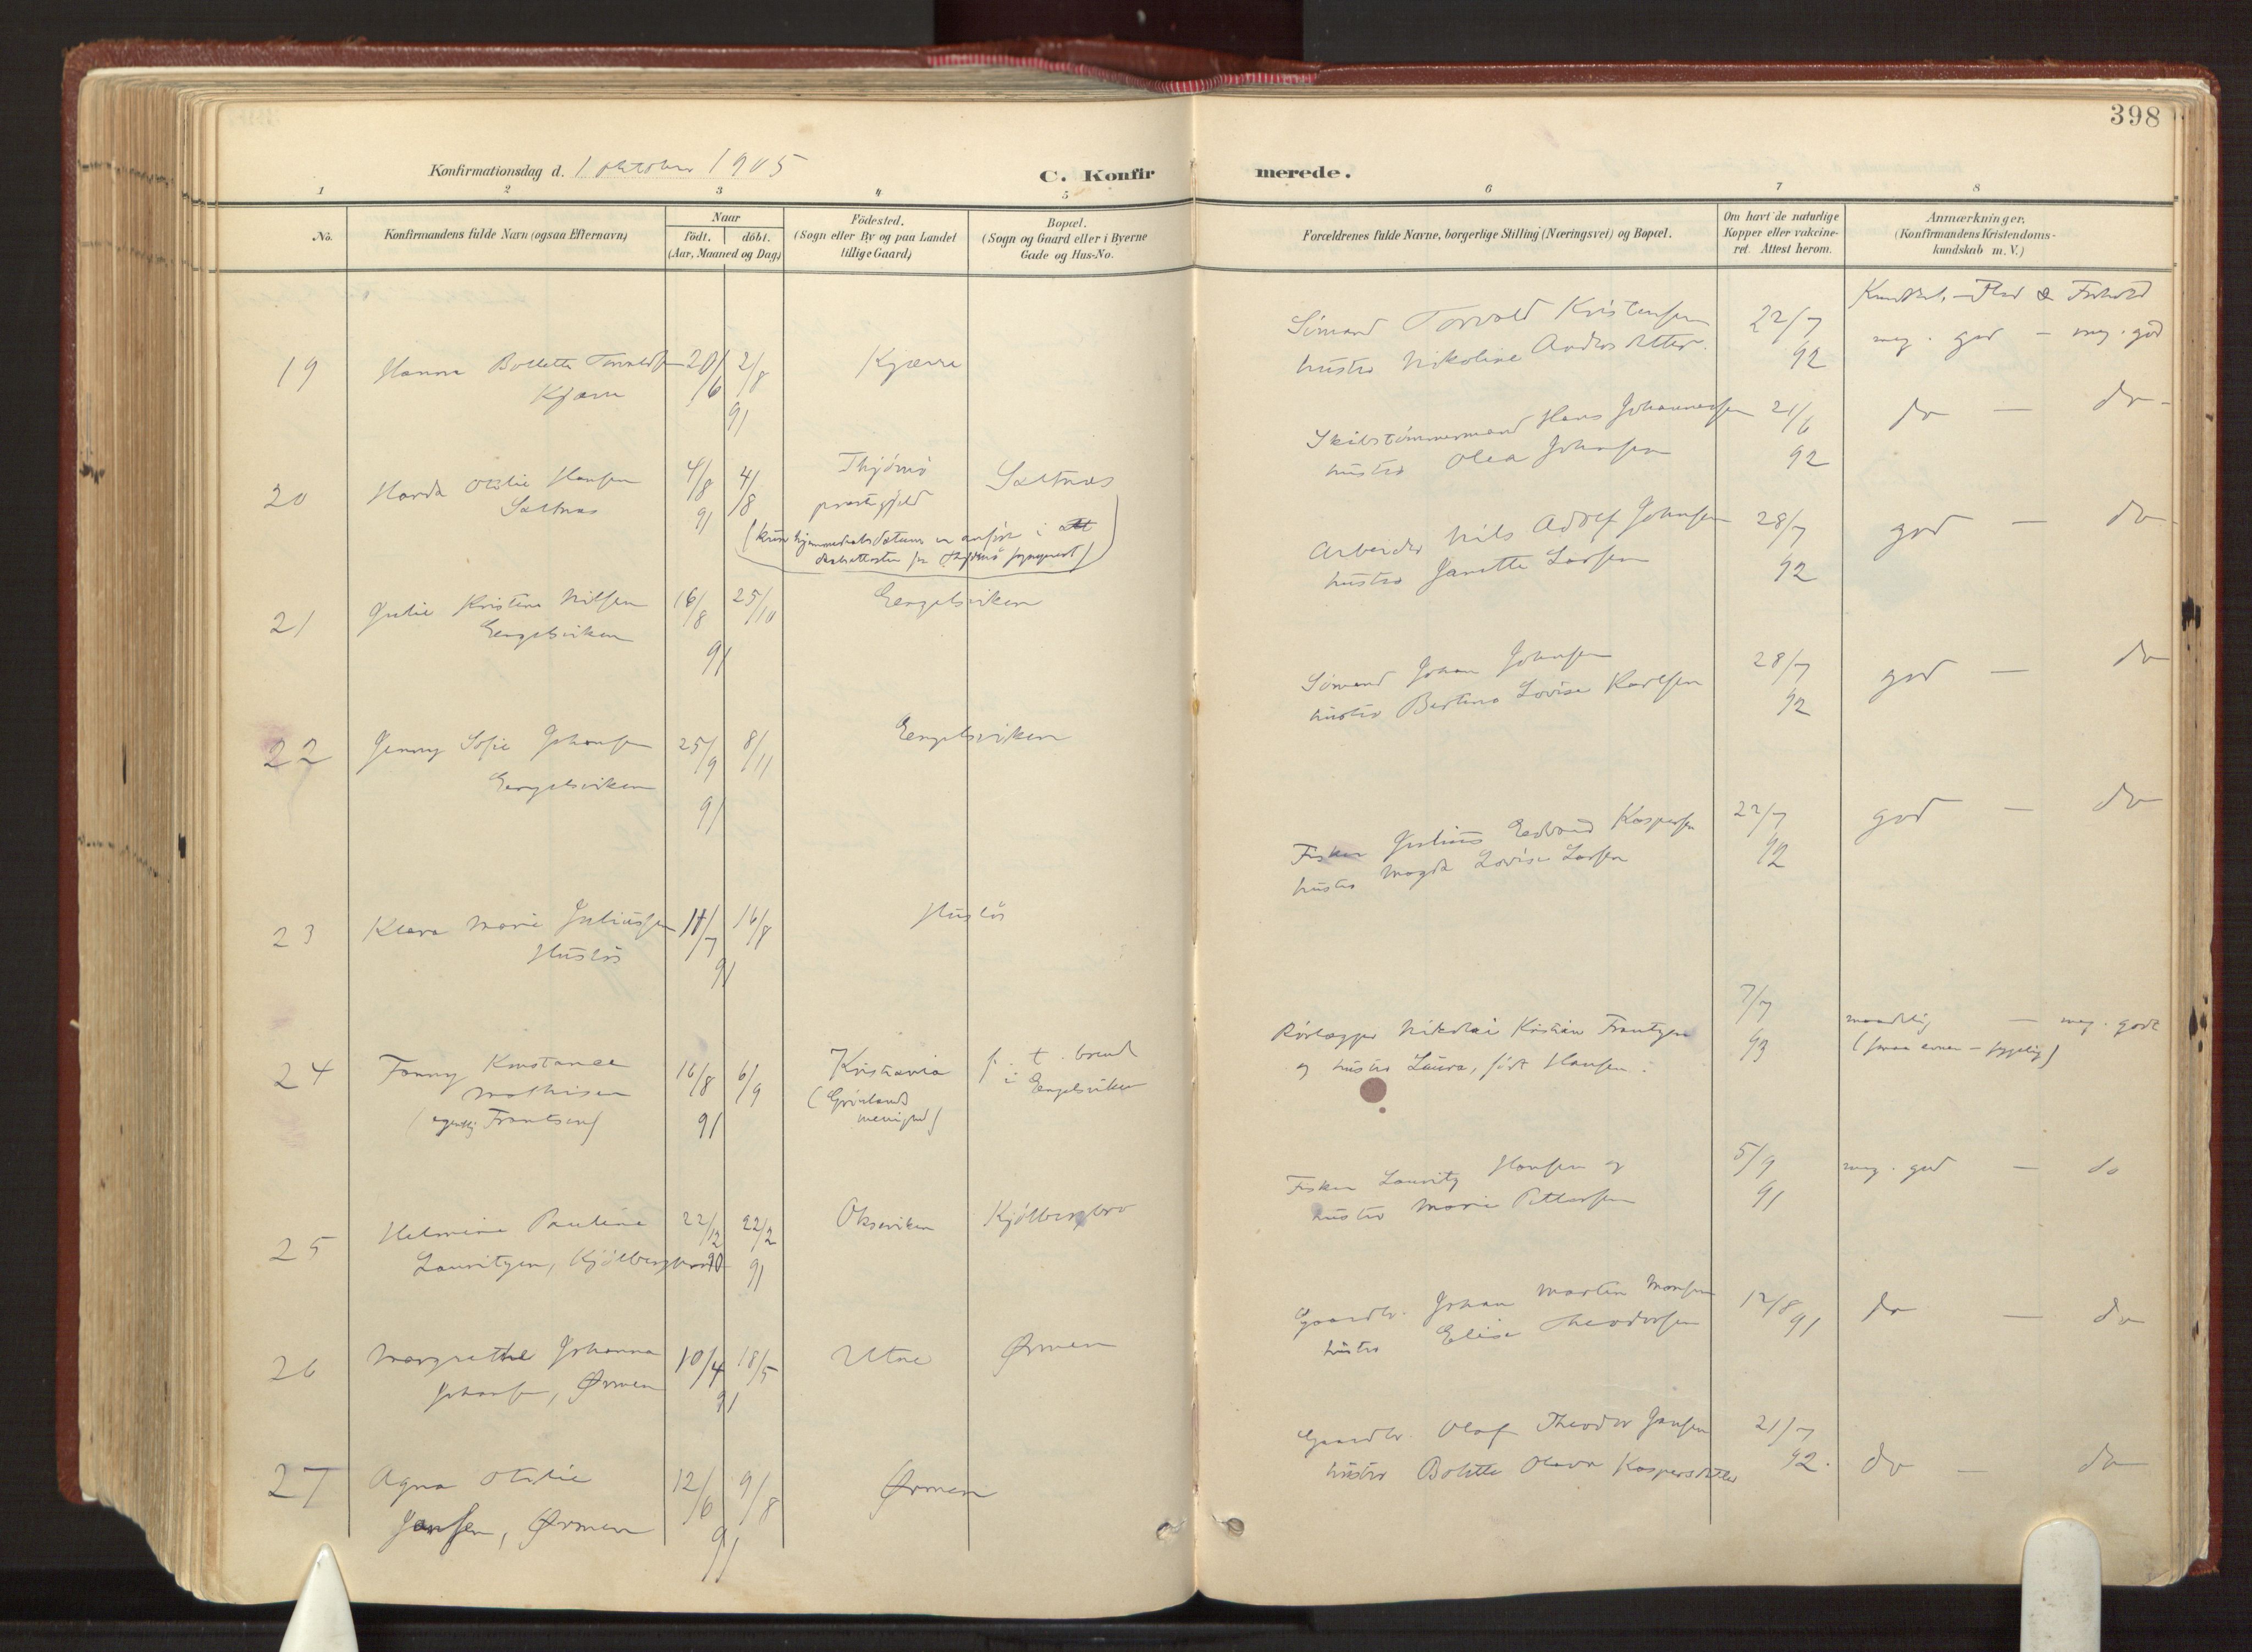 398
Konfirmationsdag d. 1 oktober 1905
C. Konfirmerede.
1 2 3 4 5 6 7 8
No.
Konfirmandens fulde Navn (ogsaa Efternavn)
Naar
födt. döbt.
(Aar, Maaned og Dag)
Födested.
(Sogn eller By og paa Landet
tillige Gaard)
Bopæl.
(Sogn og Gaard eller i Byerne
Gade og Hus-No.
Forældrenes fulde Navne, borgerlige Stilling (Næringsvei) og Bopæl.
Om havt de naturlige
Kopper eller vakcine-
ret. Attest herom.
Anmærkninger.
(Konfirmandens Kristendoms-
kundskab m. V.)
19 Hanna Bollette 20/6 2/8 Kjærre
91
Sömand Torvald Kristensen 22/7 meg. god – meg. god
hustru Nikoline 92
20 Otilie Hansen 4/8 4/8 Thjömö Saltnæs
Saltnæs 91 præstegjeld
(kun hjemmedaabsdatum er anfört i
Skibstömmermand Hans Johannessen 21/6 do – do
hustru Olea Johansen 92
21 Julie Kristine Nilsen 16/8 25/10 Engelsviken
Engelsviken 91
Arbeider Nils Adolf Johansen 28/7 god – do
hustru Janette Larsen 92
22 Jenny Sofie Johansen 25/9 8/11 Engelsviken
Engelsviken 91
Sömand Johan Johansen 28/7 god – do
hustru Bertine Lovise Karlsen 92
23 Klara Marie Juliussen 11/7 16/8 Huslös
Huslös 91
Fisker Julius Edvard Kaspersen 22/7 god – do
hustru Magda Lovise Larsen 92
24 Fanny Konstance 16/8 6/9 Kristiania f. t. boende
Mathisen (Grönlands i Engelsviken
(egentlig Frantsen) 91 menighed)
Rörlægger Nikolai Kristian Frantzen 7/7 maadelig – meg. godt
og hustru Laura, födt Hansen. 93 (smaa evner – sygelig)
25 Helmine Pauline 22/12 22/2 Oksviken Kjölbergbro
Lauritzen, Kjölbergbro 90 91
Fisker Lauritz Hansen og 5/9 meg. god – do
hustru Marie Pettersen 91
26 Margrethe Johanna 10/4 18/5 Utne Ørmen
Johansen, Ørmen 91
Gaardbr. Johan Martin Monsen 12/8 91 do – do
hustru Elise Theodorsen
27 Agna Otilie 12/6 9/8 Ørmen
Jansen, Ørmen 91
Gaardbr. Olaf Theodor Jansen 21/7 do – do
hustru Bolette Olava Kaspersdatter 92.